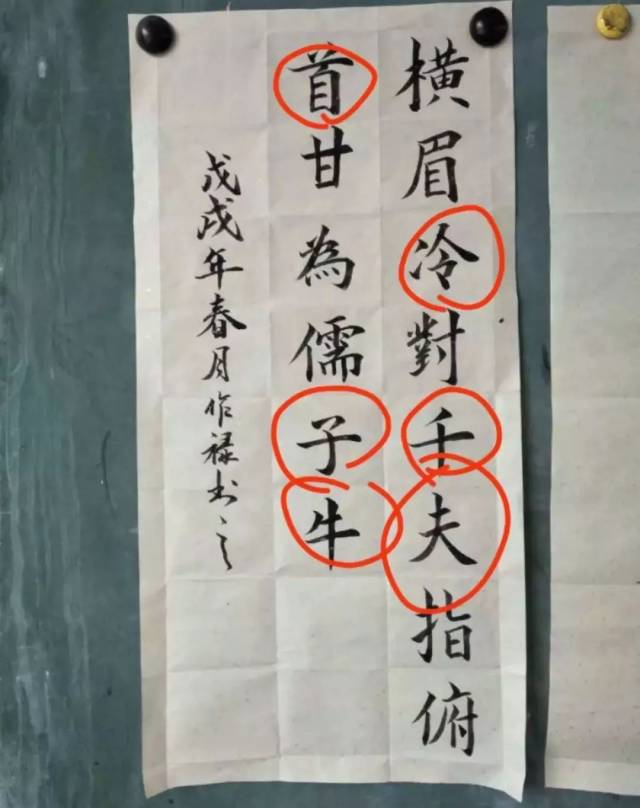 橫眉冷對壬夫指俯
首甘為儒子牛
戊戌年春月作禄书之